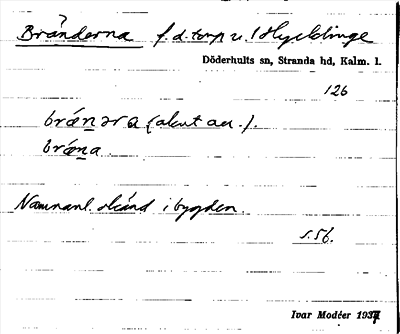 Bränderna f. d. torp u. Hycklinge
Döderhults sn, Stranda hd, Kalm. l.
126
bræ̀nəra (akut acc.).
bræ̀na.
Namnanl. okänd i bygden.
s. 56.
Ivar Modéer 1937